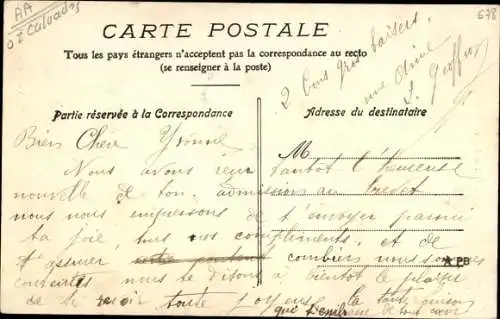 AA
OZ Calvados
678
CARTE POSTALE
Tous les pays étrangers n'acceptent pas la correspondance au recto
(se renseigner à la poste)
2 bons gros baisers
Partie réservée à la Correspondance
Adresse du destinataire
M
Bien Chère Yvonne
Nous avons reçu tantôt l'heureuse
nouvelle de ton admission au brevet
nous nous empressons de t'envoyer parmi
ta joie, tous nos compliments, et de
t'assurer combien nous sommes
contentes nous te disons à bientôt le plaisir
de te revoir toute joyeuse
qui t'embrasse de tout cœur
APB